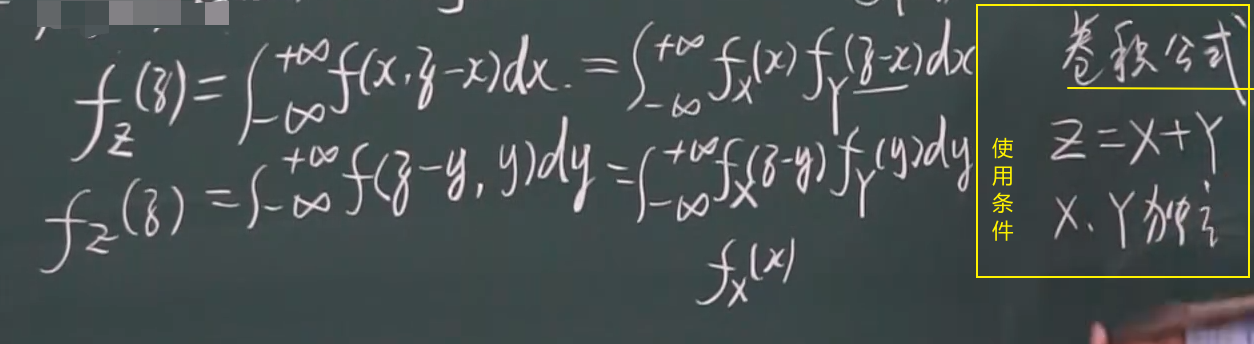 f_Z(z) = ∫_{-∞}^{+∞} f(x, z-x)dx. = ∫_{-∞}^{+∞} f_X(x) f_Y(z-x)dx
f_Z(z) = ∫_{-∞}^{+∞} f(z-y, y)dy = ∫_{-∞}^{+∞} f_X(z-y) f_Y(y)dy
f_X(x)
卷积公式
Z=X+Y
X、Y独立
使用条件